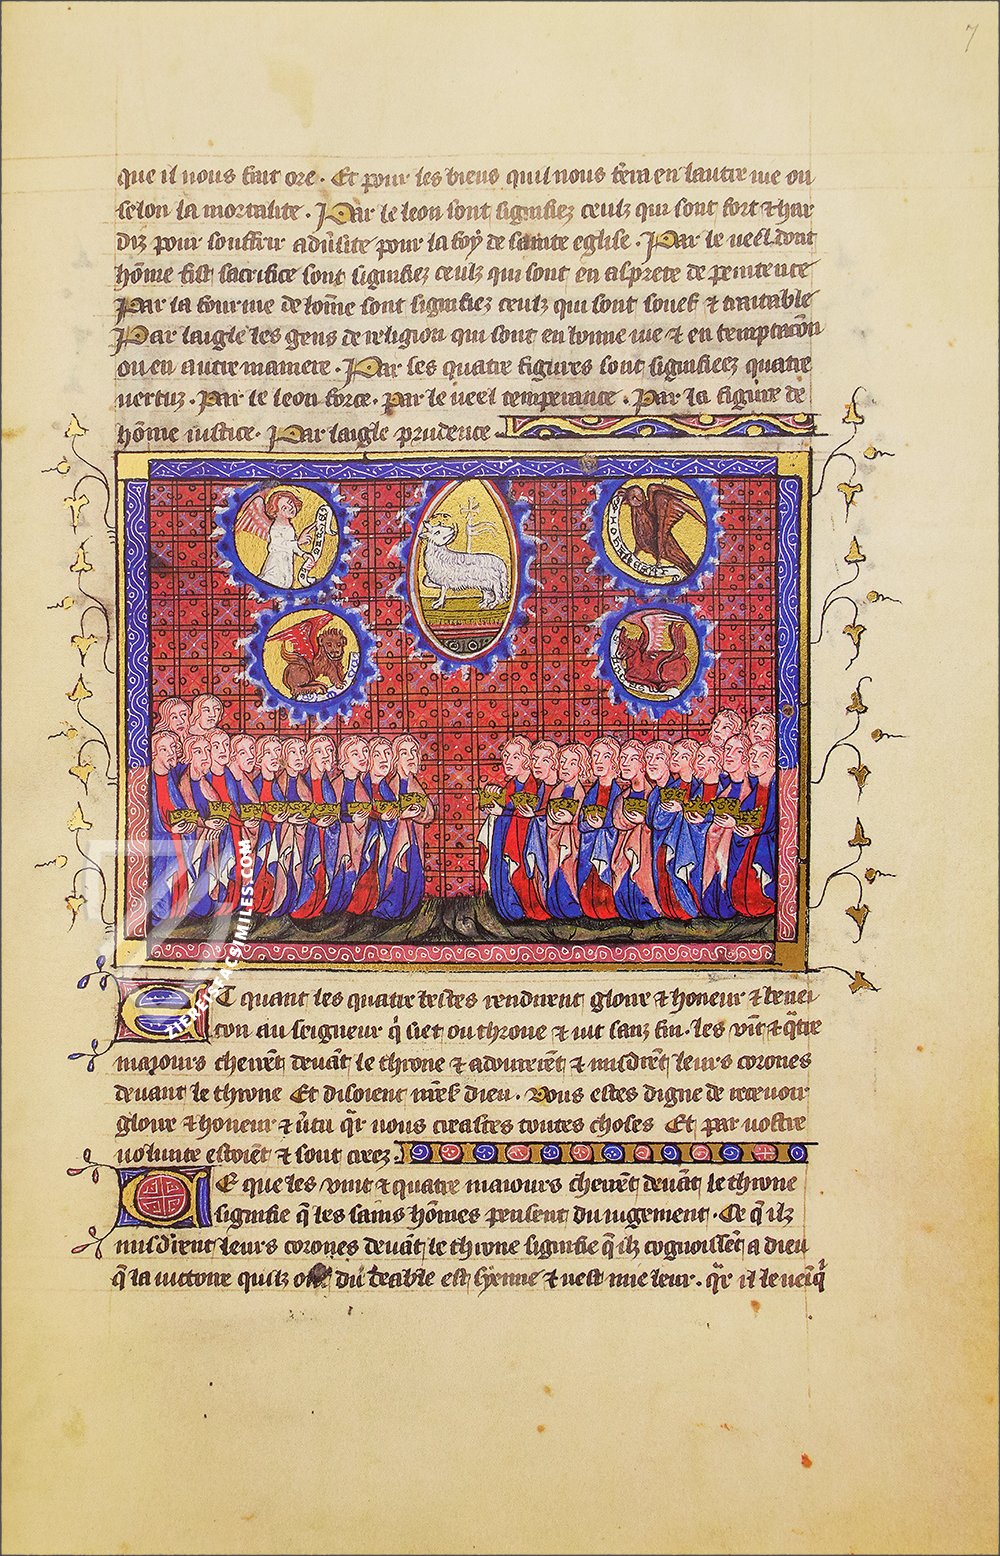 7
que il nous fait ore. Et pour les biens quil nous fera en lautre uie ou
selon la mortalite. Par le leon sont signifiez ceulz qui sont fort & har
diz pour souffrir adũsite pour la foy de sainte eglise. Par le ueel dont
hõme fist sacrifice sont signifiez ceulz qui sont en asprete de penitence
Par la fourme de lome sont signifiez ceulz qui sont souef & traitable
Par laigle les gens de religion qui sont en bonne uie & en temptacõn
ou en autre maniere. Par les quatre figures sont signifieez quatre
uertuz. Par le leon force. par le ueel temperance. Par la figure de
hõme iustice. Par laigle prudence
ZIEREIS FACSIMILES.COM
Et quant les quatre bestes rendirent gloire & honeur & benei
con au seigneur q̃ siet ou throne & uit sanz fin. les vĩt & q̃tre
maiours cheirẽt deuãt le throne & adourerẽt & misdrẽt leurs corones
deuant le throne Et disoient dieu. Vous estes digne de receuoir
gloire & honeur & ũtu q̃r uous creastes toutes choses Et par uostre
uolunte estoiẽt & sont creez.
Ce que les vint & quatre maiours cheirẽt deuãt le throne
signifie q̃ les sains hõmes pensent du iugement. Ce q̃ ilz
misdrent leurs corones deuãt le throne signifie q̃ ilz cognoissẽt a dieu
q̃ la uictoire quilz du deable est syenne & nest mie leur. q̃r il le